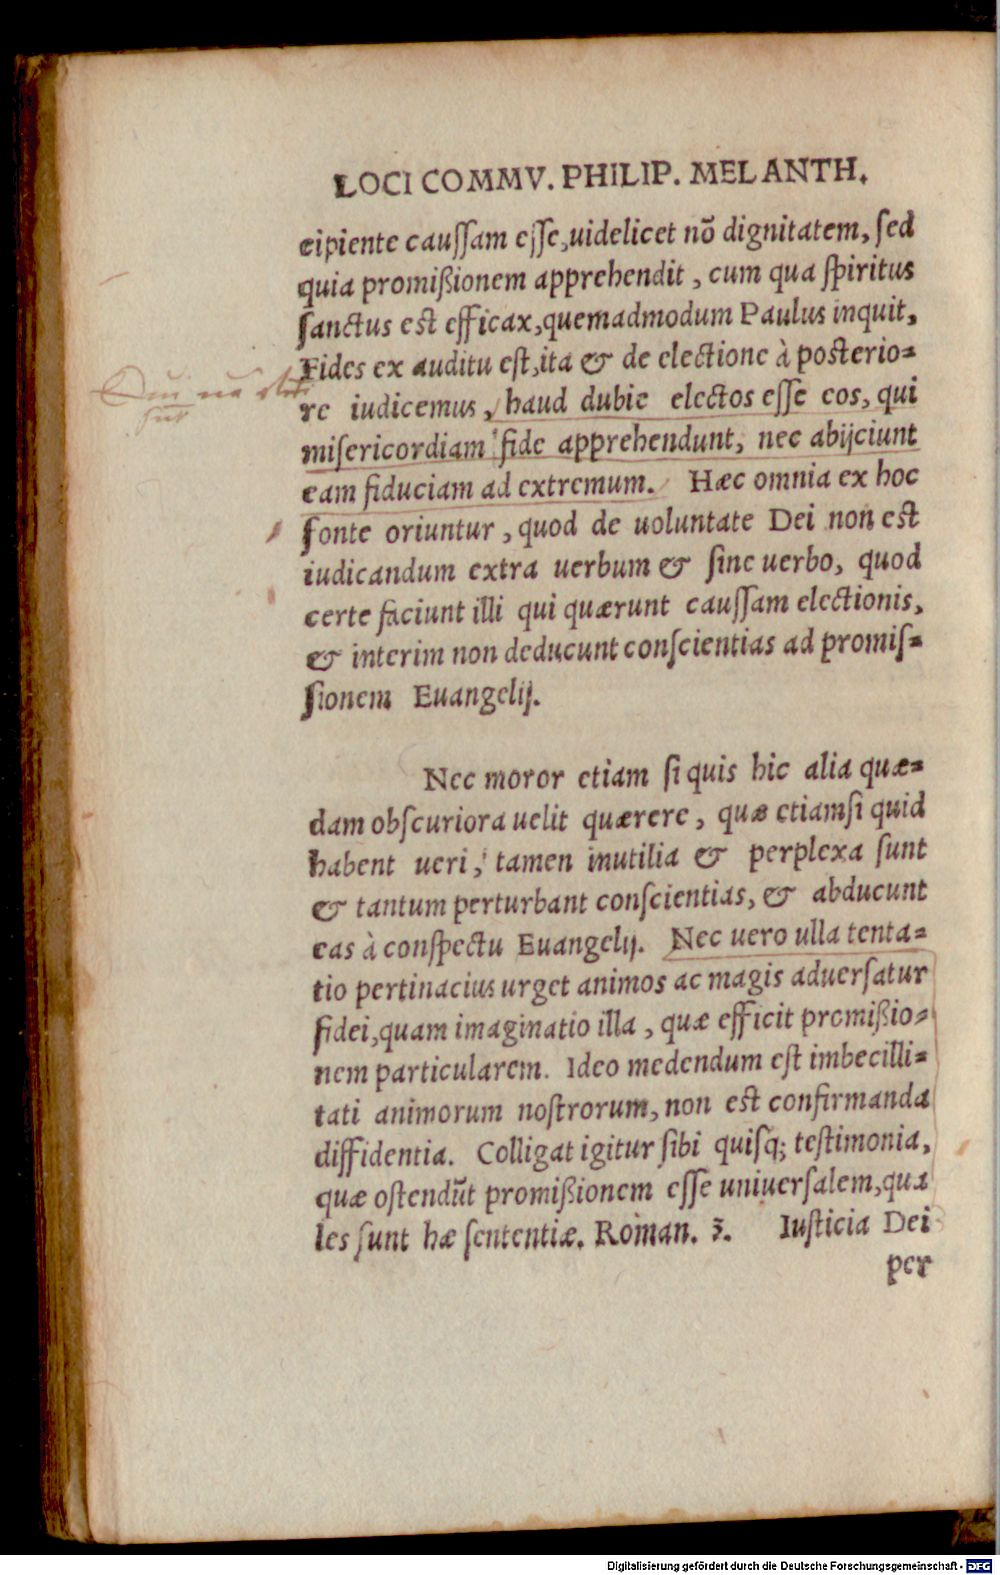 LOCI COMMV. PHILIP. MELANTH.
cipiente cauſſam eſſe,uidelicet nõ dignitatem, ſed
quia promißionem apprehendit , cum qua ſpiritus
ſanctus est efficax,quemadmodum Paulus inquit,
Fides ex auditu eſt,ita & de electione à poſterio=
re iudicemus , haud dubie electos eſſe eos, qui
miſericordiam fide apprehendunt, nec abijciunt
eam fiduciam ad extremum. Hæc omnia ex hoc
fonte oriuntur , quod de uoluntate Dei non est
iudicandum extra uerbum & ſine uerbo, quod
certe faciunt illi qui quærunt cauſſam electionis,
& interim non deducunt conſcientias ad promiſ=
ſionem Euangelij.
Nec moror etiam ſi quis hic alia quæ=
dam obſcuriora uelit quærere , quæ etiamſi quid
habent ueri, tamen inutilia & perplexa ſunt
& tantum perturbant conſcientias, & abducunt
eas à conſpectu Euangelij. Nec uero ulla tenta=
tio pertinacius urget animos ac magis aduerſatur
fidei,quam imaginatio illa , quæ efficit promißio=
nem particularem. Ideo medendum eſt imbecilli=
tati animorum noſtrorum, non eſt confirmanda
diffidentia. Colligat igitur ſibi quiſq; teſtimonia,
quæ oſtendũt promißionem eſſe uniuerſalem,qua
les ſunt hæ ſententiæ. Roman. 3. Iuſticia Dei
per
Digitalisierung gefördert durch die Deutsche Forschungsgemeinschaft - DFG